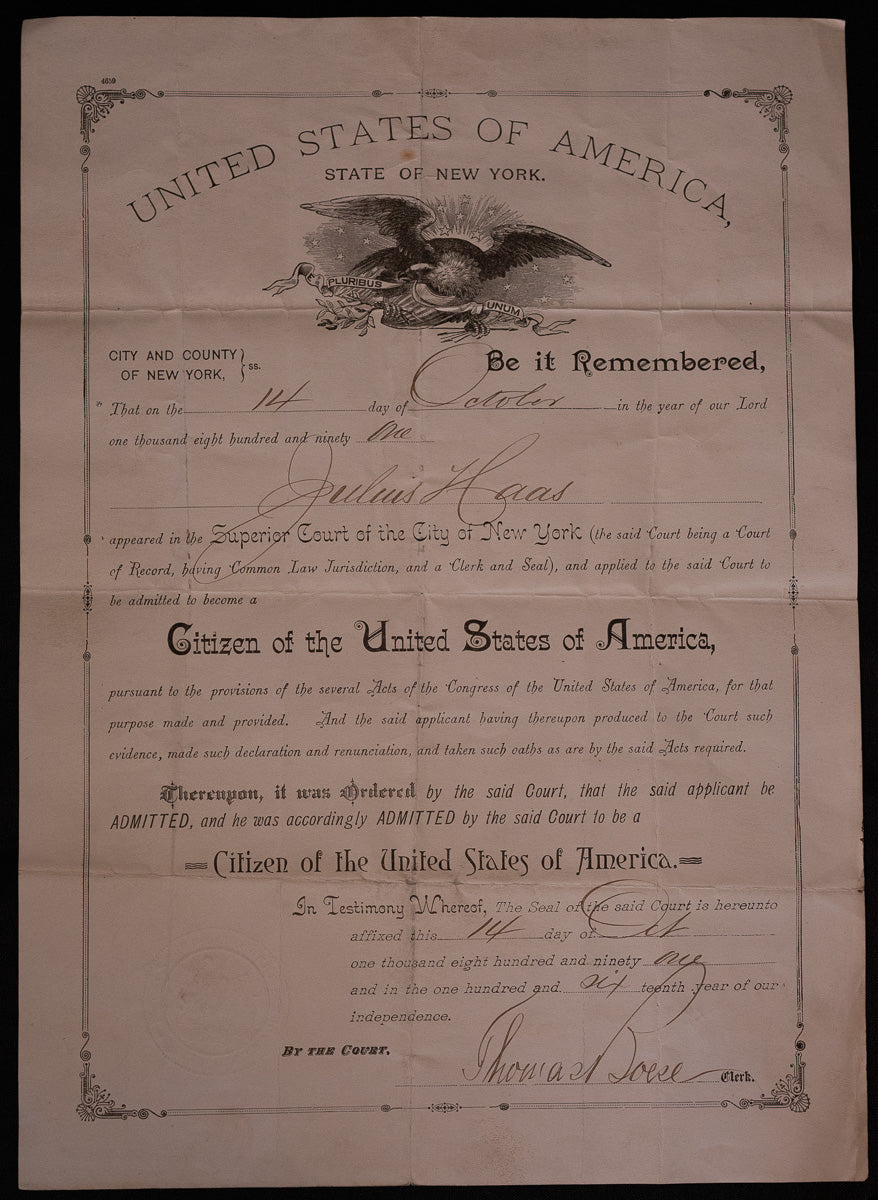 4659
UNITED STATES OF AMERICA,
STATE OF NEW YORK.
E PLURIBUS UNUM
CITY AND COUNTY OF NEW YORK, } ss.
Be it Remembered,
That on the 14 day of October in the year of our Lord
one thousand eight hundred and ninety One
Julius Haas
appeared in the Superior Court of the City of New York (the said Court being a Court
of Record, having Common Law Jurisdiction, and a Clerk and Seal), and applied to the said Court to
be admitted to become a
Citizen of the United States of America,
pursuant to the provisions of the several Acts of the Congress of the United States of America, for that
purpose made and provided. And the said applicant having thereupon produced to the Court such
evidence, made such declaration and renunciation, and taken such oaths as are by the said Acts required.
Thereupon, it was Ordered by the said Court, that the said applicant be
ADMITTED, and he was accordingly ADMITTED by the said Court to be a
Citizen of the United States of America.
In Testimony Whereof, The Seal of the said Court is hereunto
affixed this 14 day of Oct
one thousand eight hundred and ninety one
and in the one hundred and six teenth year of our
independence.
BY THE COURT,
Thomas Boese Clerk.